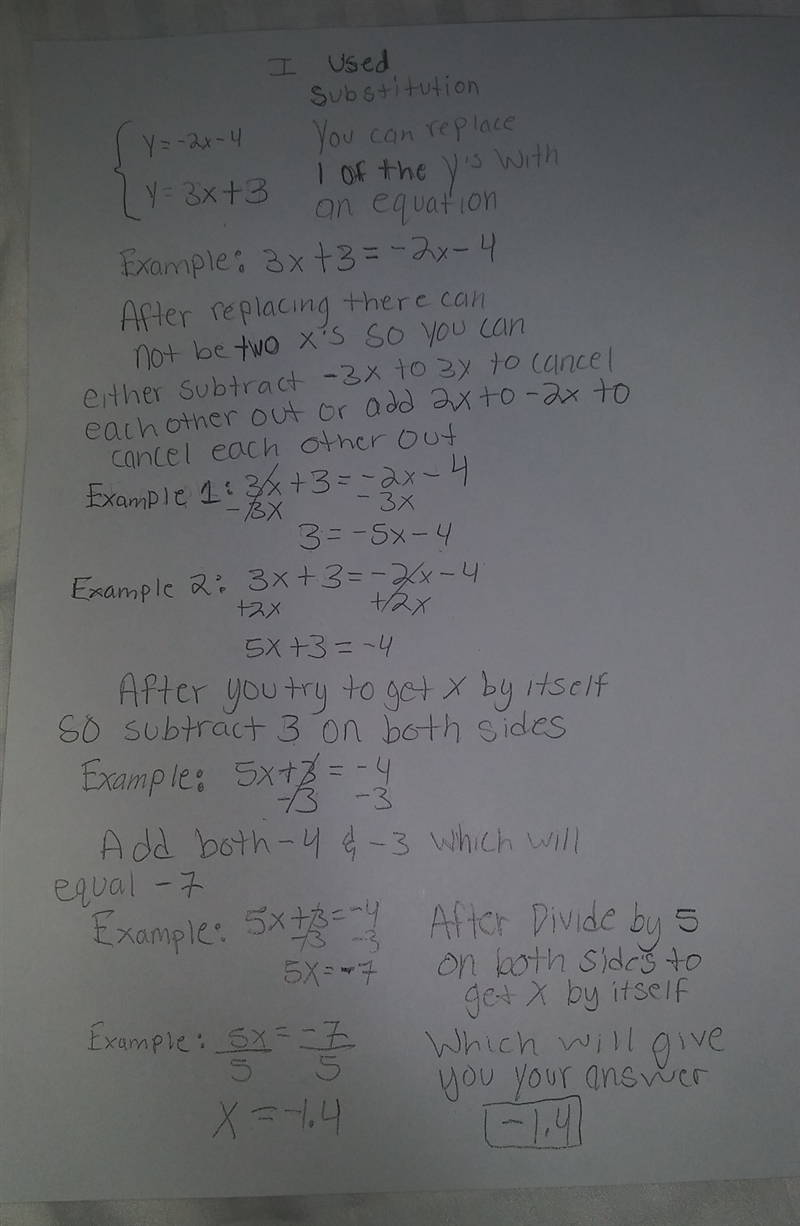 I Used
Substitution
y=-2x-4
y=3x+3
You can replace
1 of the y's with
an equation
Example: 3x+3=-2x-4
After replacing there can
not be two x's so you can
either subtract -3x to 3x to cancel
each other out or add 2x to -2x to
cancel each other out
Example 1: 3x+3=-2x-4
-3x -3x
3=-5x-4
Example 2: 3x+3=-2x-4
+2x +2x
5x+3=-4
After you try to get x by itself
so subtract 3 on both sides
Example: 5x+3=-4
-3 -3
Add both -4 & -3 which will
equal -7
Example: 5x+3=-4
-3 -3
5x=-7
After Divide by 5
on both sides to
get x by itself
Example: 5x=-7
5 5
x=-1.4
Which will give
you your answer
-1.4